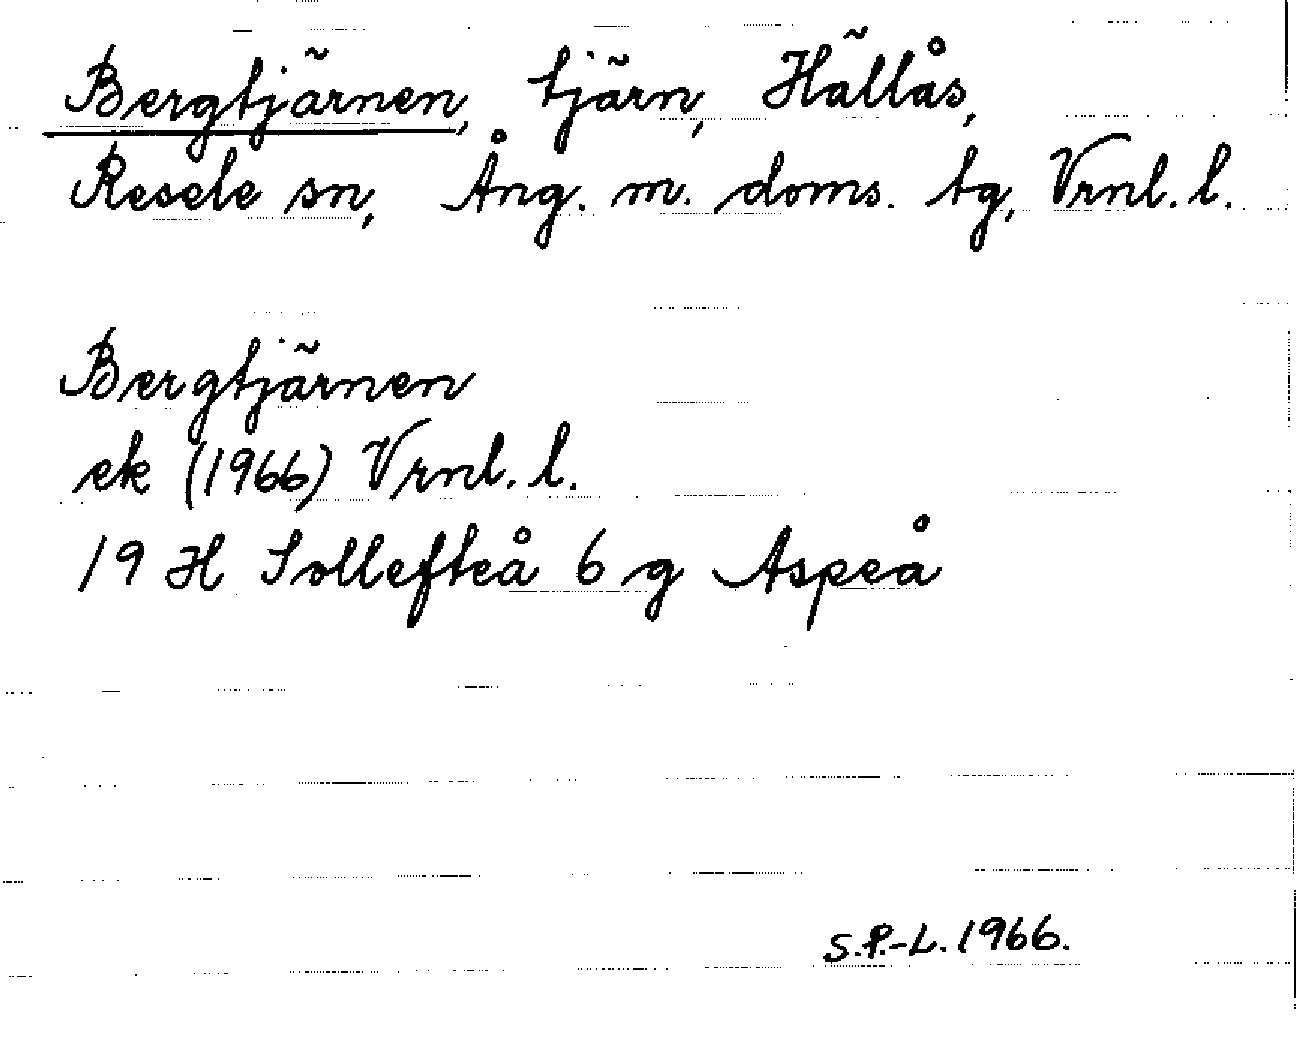 Bergtjärnen, tjärn, Hällås,
Resele sn, Ång. m. doms. tg, Vrnl. l.
Bergtjärnen
ek (1966) Vrnl. l.
19 H Sollefteå 6 g Aspeå
S.P.-L. 1966.